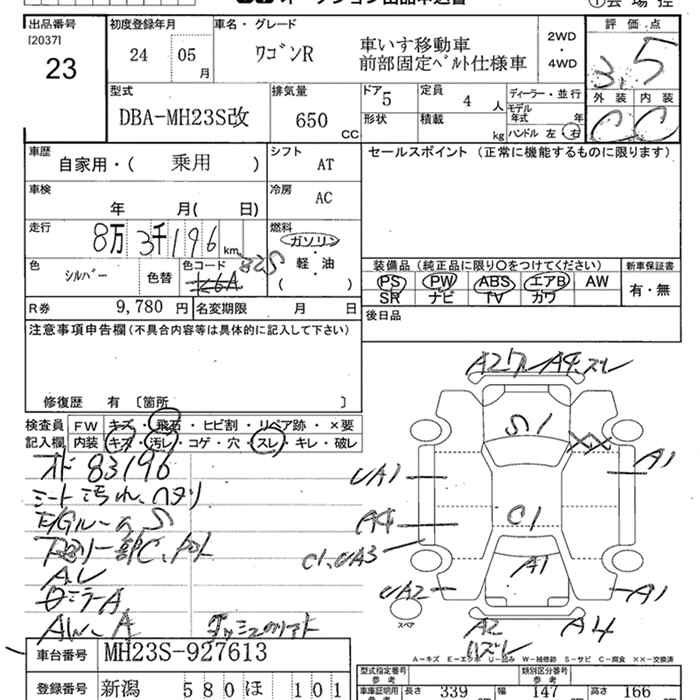 出品番号
[2037]
23
初度登録年月
24 05 月
車名・グレード
ワゴンR 車いす移動車
前部固定ベルト仕様車
2WD
・
4WD
評価点
3.5
外装 内装
C C
型式
DBA-MH23S改
排気量
650 CC
ドア 5
定員 4 人
形状
積載 kg
ディーラー・並行
モデル年式 年
ハンドル 左 右
車歴
自家用・( 乗用 )
シフト AT
セールスポイント (正常に機能するものに限ります)
車検
年 月( 日)
冷房 AC
走行
8万3千196 km
燃料
ガソリン
軽・油
( )
色 シルバー
色替
色コード
Z2S
装備品 (純正品に限り○をつけてください)
新車保証書
PS PW ABS エアB AW
SR ナビ TV カワ
有・無
R券 9,780 円
名変期限 月 日
後日品
注意事項申告欄(不具合内容等は具体的に記入して下さい)
修復歴 有 〔箇所 〕
検査員
記入欄
FW キズ・飛石・ヒビ割・リペア跡・×要
内装 キズ・汚レ・コゲ・穴・スレ・キレ・破レ
オド 83196
シート汚れ、ヘタリ
E/Gルーム S
下回り一部C、
AL
ロミラーA
AW-A
A27 A4、ズレ
S1
XX
UA1
A1
A4
C1
C1、UA3
A1
UA2
A1
スペア
A2
ハズレ
A4
A-キズ E-エクボ U-凹み W-補修跡 S-サビ C-腐食 ××-交換済
車台番号 MH23S-927613
登録番号 新潟 580 ほ 101
型式指定番号
参考
類別区分番号
参考
車庫証明用
参考
長さ 339 幅 147 高さ 166